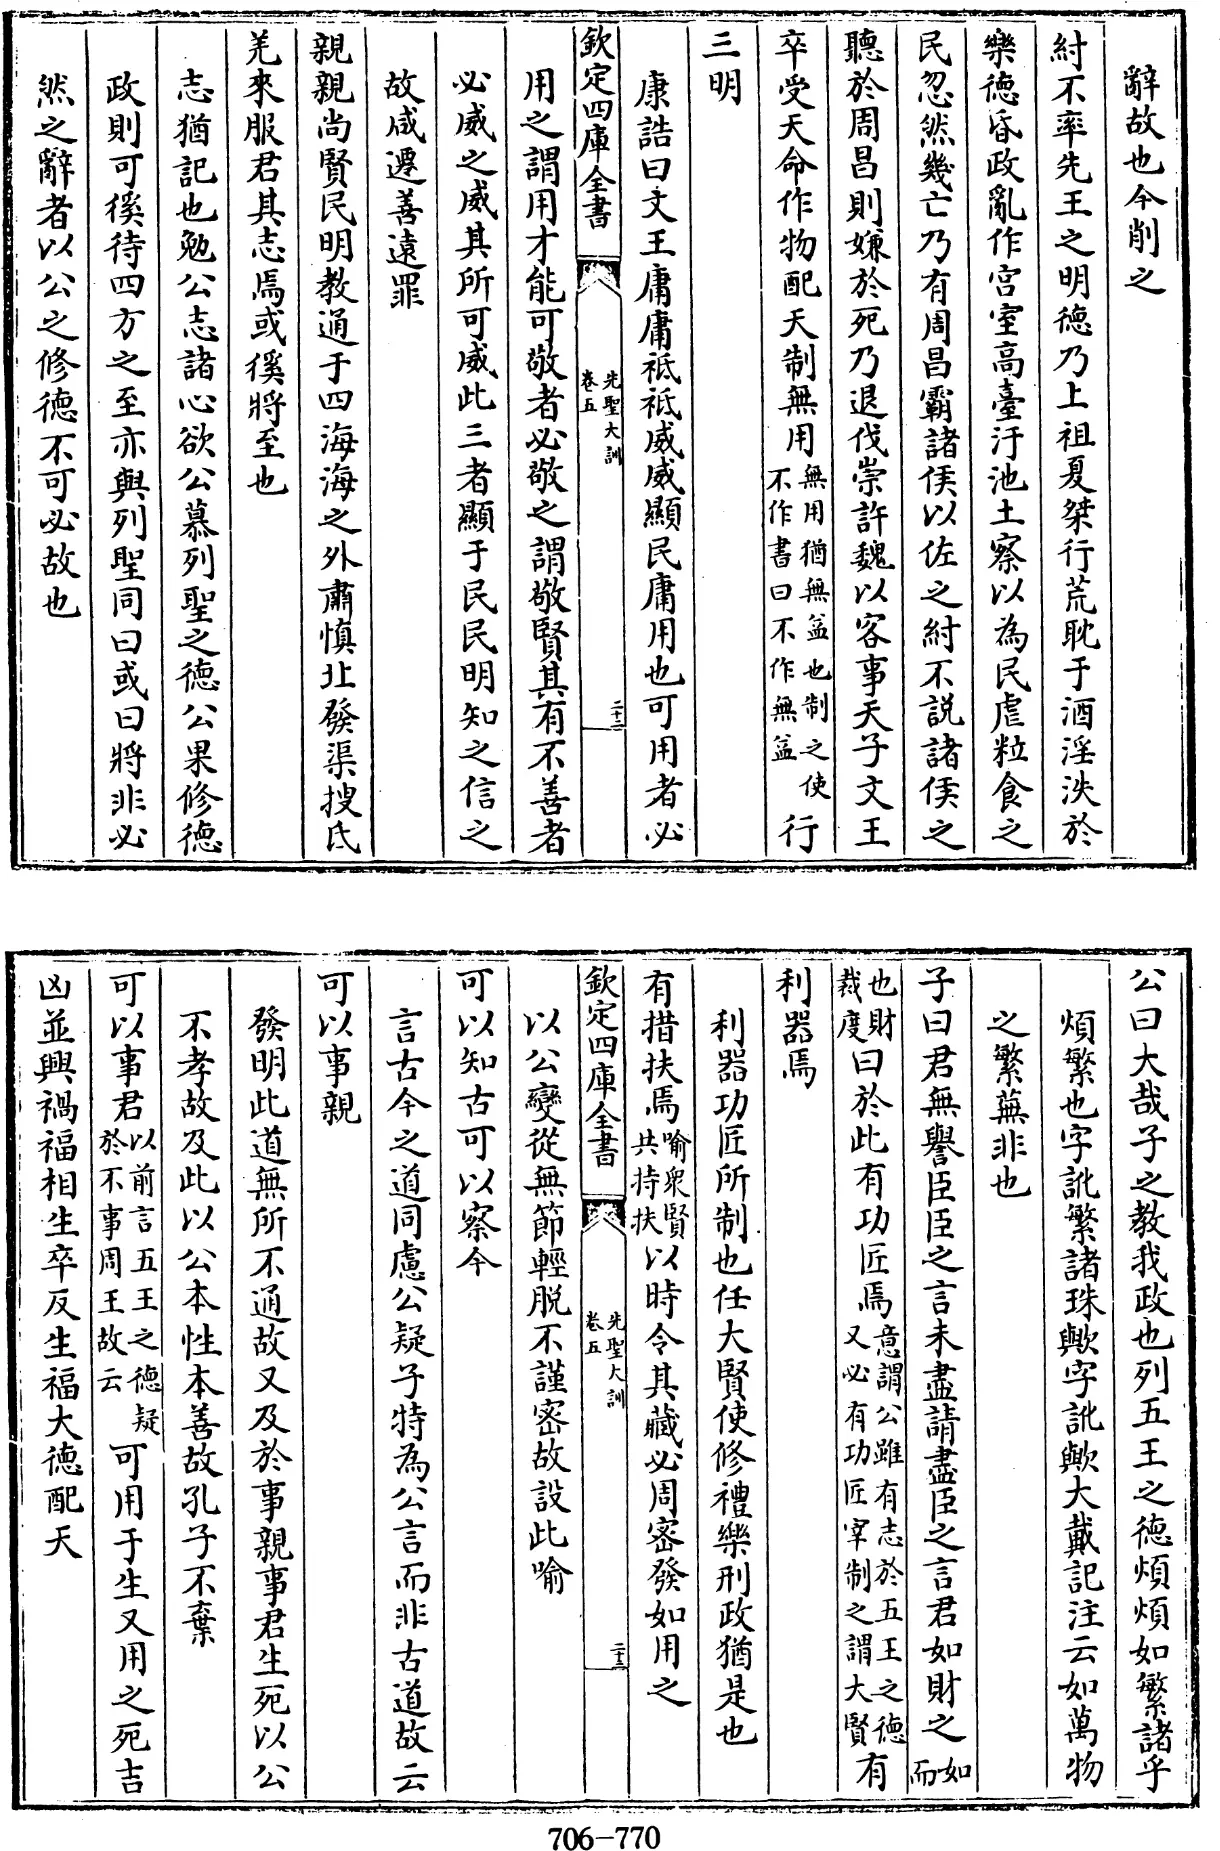 辭故也今削之
紂不率先王之明德乃上祖夏桀行荒耽于酒淫泆於
樂德昏政亂作宫室高臺汙池土察以為民虐粒食之
民忽然幾亡乃有周昌霸諸侯以佐之紂不説諸侯之
聽於周昌則嫌於死乃退伐崇許魏以客事天子文王
卒受天命作物配天制無用無用猶無益也制之使不作書曰不作無益行
三明
康誥曰文王庸庸祗祗威威顯民庸用也可用者必
欽定四庫全書
先聖大訓
卷五
二十二
用之謂用才能可敬者必敬之謂敬賢其有不善者
必威之威其所可威此三者顯于民民明知之信之
故咸遷善遠罪
親親尚賢民明教通于四海海之外肅慎北發渠搜氐
羌來服君其志焉或徯將至也
志猶記也勉公志諸心欲公慕列聖之德公果修德
政則可徯待四方之至亦與列聖同曰或曰將非必
然之辭者以公之修德不可必故也
公曰大哉子之教我政也列五王之德煩煩如繁諸乎
煩繁也字訛繁諸珠歟字訛歟大戴記注云如萬物
之繁蕪非也
子曰君無譽臣臣之言未盡請盡臣之言君如財之如而
也財裁度曰於此有功匠焉意謂公雖有志於五王之德又必有功匠宰制之謂大賢有
利器焉
利器功匠所制也任大賢使修禮樂刑政猶是也
有措扶焉喻衆賢共持扶以時令其藏必周密發如用之
欽定四庫全書
先聖大訓
卷五
二十三
以公變從無節輕脱不謹密故設此喻
可以知古可以察今
言古今之道同慮公疑子特為公言而非古道故云
可以事親
發明此道無所不通故又及於事親事君生死以公
不孝故及此以公本性本善故孔子不棄
可以事君以前言五王之德疑於不事周王故云可用于生又用之死吉
凶並興禍福相生卒反生福大德配天
706-770